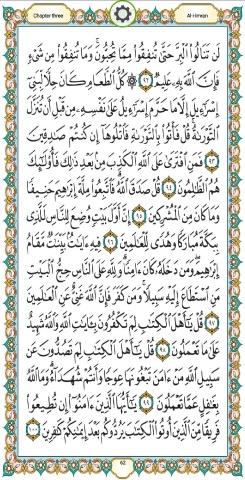 Chapter three
Al-i-Imran
لَن تَنَالُوا۟ ٱلْبِرَّ حَتَّىٰ تُنفِقُوا۟ مِمَّا تُحِبُّونَ ۚ وَمَا تُنفِقُوا۟ مِن شَىْءٍ
فَإِنَّ ٱللَّهَ بِهِۦ عَلِيمٌ ﴿٩٢﴾ ۞ كُلُّ ٱلطَّعَامِ كَانَ حِلًّا لِّبَنِىٓ
إِسْرَٰٓءِيلَ إِلَّا مَا حَرَّمَ إِسْرَٰٓءِيلُ عَلَىٰ نَفْسِهِۦ مِن قَبْلِ أَن تُنَزَّلَ
ٱلتَّوْرَىٰةُ ۗ قُلْ فَأْتُوا۟ بِٱلتَّوْرَىٰةِ فَٱتْلُوهَآ إِن كُنتُمْ صَٰدِقِينَ
﴿٩٣﴾ فَمَنِ ٱفْتَرَىٰ عَلَى ٱللَّهِ ٱلْكَذِبَ مِنۢ بَعْدِ ذَٰلِكَ فَأُو۟لَٰٓئِكَ
هُمُ ٱلظَّٰلِمُونَ ﴿٩٤﴾ قُلْ صَدَقَ ٱللَّهُ ۗ فَٱتَّبِعُوا۟ مِلَّةَ إِبْرَٰهِيمَ حَنِيفًا
وَمَا كَانَ مِنَ ٱلْمُشْرِكِينَ ﴿٩٥﴾ إِنَّ أَوَّلَ بَيْتٍ وُضِعَ لِلنَّاسِ لَلَّذِى
بِبَكَّةَ مُبَارَكًا وَهُدًى لِّلْعَٰلَمِينَ ﴿٩٦﴾ فِيهِ ءَايَٰتٌۢ بَيِّنَٰتٌ مَّقَامُ
إِبْرَٰهِيمَ ۖ وَمَن دَخَلَهُۥ كَانَ ءَامِنًا ۗ وَلِلَّهِ عَلَى ٱلنَّاسِ حِجُّ ٱلْبَيْتِ
مَنِ ٱسْتَطَاعَ إِلَيْهِ سَبِيلًا ۚ وَمَن كَفَرَ فَإِنَّ ٱللَّهَ غَنِىٌّ عَنِ ٱلْعَٰلَمِينَ
﴿٩٧﴾ قُلْ يَٰٓأَهْلَ ٱلْكِتَٰبِ لِمَ تَكْفُرُونَ بِـَٔايَٰتِ ٱللَّهِ وَٱللَّهُ شَهِيدٌ
عَلَىٰ مَا تَعْمَلُونَ ﴿٩٨﴾ قُلْ يَٰٓأَهْلَ ٱلْكِتَٰبِ لِمَ تَصُدُّونَ عَن
سَبِيلِ ٱللَّهِ مَنْ ءَامَنَ تَبْغُونَهَا عِوَجًا وَأَنتُمْ شُهَدَآءُ ۗ وَمَا ٱللَّهُ
بِغَٰفِلٍ عَمَّا تَعْمَلُونَ ﴿٩٩﴾ يَٰٓأَيُّهَا ٱلَّذِينَ ءَامَنُوٓا۟ إِن تُطِيعُوا۟
فَرِيقًا مِّنَ ٱلَّذِينَ أُوتُوا۟ ٱلْكِتَٰبَ يَرُدُّوكُم بَعْدَ إِيمَٰنِكُمْ كَٰفِرِينَ ﴿١٠٠﴾
62